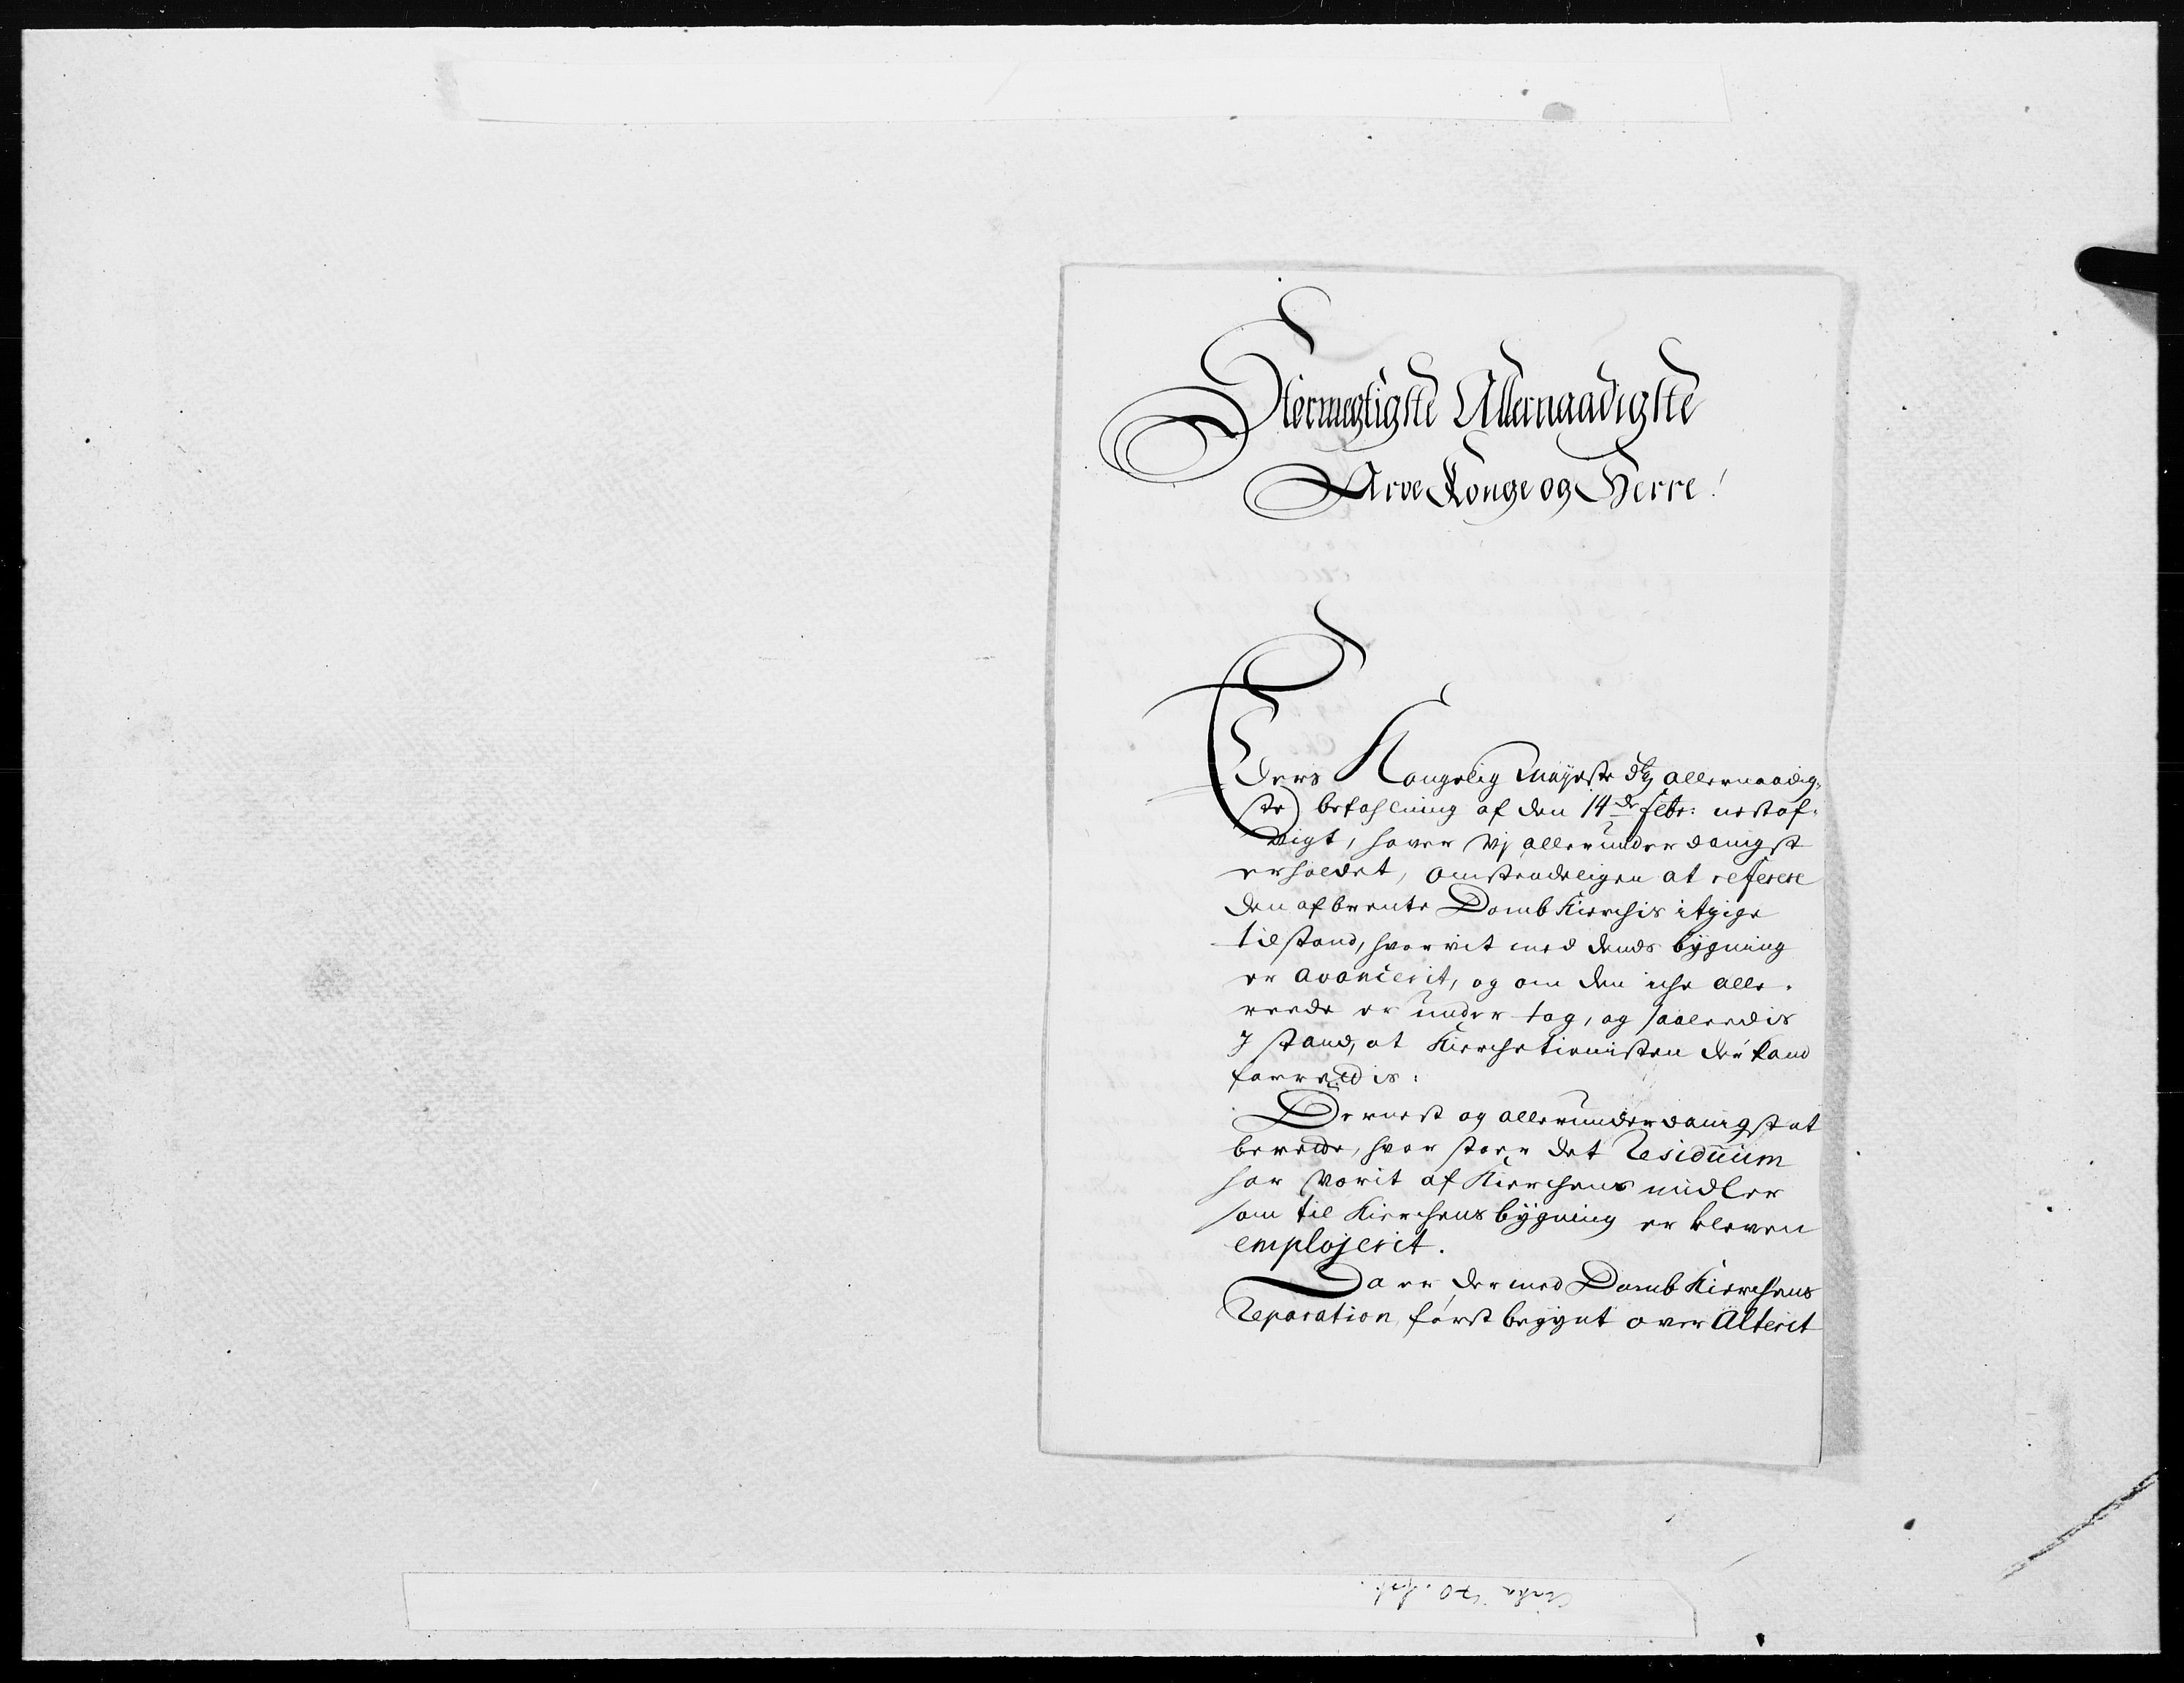 Stormegtigste Allernaadigste
Arve Konge og Herre!
Eders Kongelig Mayestꝫ allernaadig-
ste befahlning af den 14de febr: nestaf-
vigt, hafver Vj allerunderdanigst
erholdet, omstendeligen at referere
den afbrente Domb Kierchis itzige
tilstand, hvorvit med dends bygning
er avancerit, og om den iche alle-
reede er under tag, og saaleedis
J stand, at Kierchetienisten der kand
forrettis:
Dernest og allerunderdanigst at
berette, hvor stoer det Residuum
har Værit af Kierchens midler
som til Kierchens bygning er bleven
emplojerit.
Da er der med Domb Kierchens
Reparation først begynt over Alterit